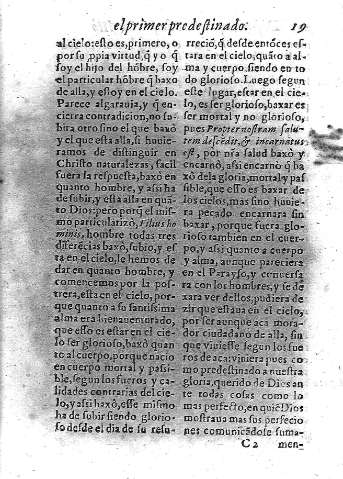 el primer predestinado. 19
al cielo: esto es, primero, o
por su ,ppia virtud, q̃ y o q̃
soy el hijo del hõbre, soy
el particular hõbre q̃ baxo
de alla, y estoy en el cielo.
Parece algarauia, y q̃ en-
cierra contradicion, no so-
bira otro sino el que baxò
y el que esta alla, si huuie-
ramos de distinguir en
Christo naturalezas, facil
fuera la respuesta, baxò en
quanto hombre, y assi ha
de subir, y esta alla en quã-
to Dios: pero porq̃ el mis-
mo particularizò, Filius ho
minis, hombre todas tres
diferẽcias baxò, subio, y es
ta en el cielo, le hemos de
dar en quanto hombre, y
comencemos por la pos-
trera, esta en el cielo, por-
que quanto a su sanctissima
alma era bienauenturado,
que esso es estar en el cie-
lo ser glorioso, baxò quan
to al cuerpo, porque nacio
en cuerpo mortal y passi-
ble, segun los fueros y ca-
lidades contrarias del cie-
lo, y assi baxò, esse mismo
ha de subir siendo glorio
so desde el dia de su resu-
rreciõ, q̃ desde entõces es
tara en el cielo, quãto a al-
ma y cuerpo, siendo en to
do glorioso. Luego segun
esse lugar, estar en el cie-
lo, es ser glorioso, baxar es
ser mortal y no glorioso,
pues Propter nostram salu-
tem descẽdit, & incarnatus
est, por nr̃a salud baxò y
encarnò, assi encarnò q̃ ba
xò de la gloria, mortal y pas
sible, que esso es baxar de
los cielos, mas sino huuie
ra pecado encarnara sin
baxar, porque fuera glo-
rioso tambien en el cuer-
po, y assi quanto a cuerpo
y alma, aunque pareciera
en el Parayso, y conuersa
ra con los hombres, y se de
xara ver dellos, pudiera de
zir que estaua en el cielo,
por ser aunque aca mora-
dor ciudadano de alla, sin
que viuiesse segun los fue
ros de aca: viniera pues co
mo predestinado a nuestra
gloria, querido de Dios an
te todas cosas como lo
mas perfecto, en quiẽ Dios
mostraua mas sus perfecio
nes comunicãdose suma-
C 2 men-